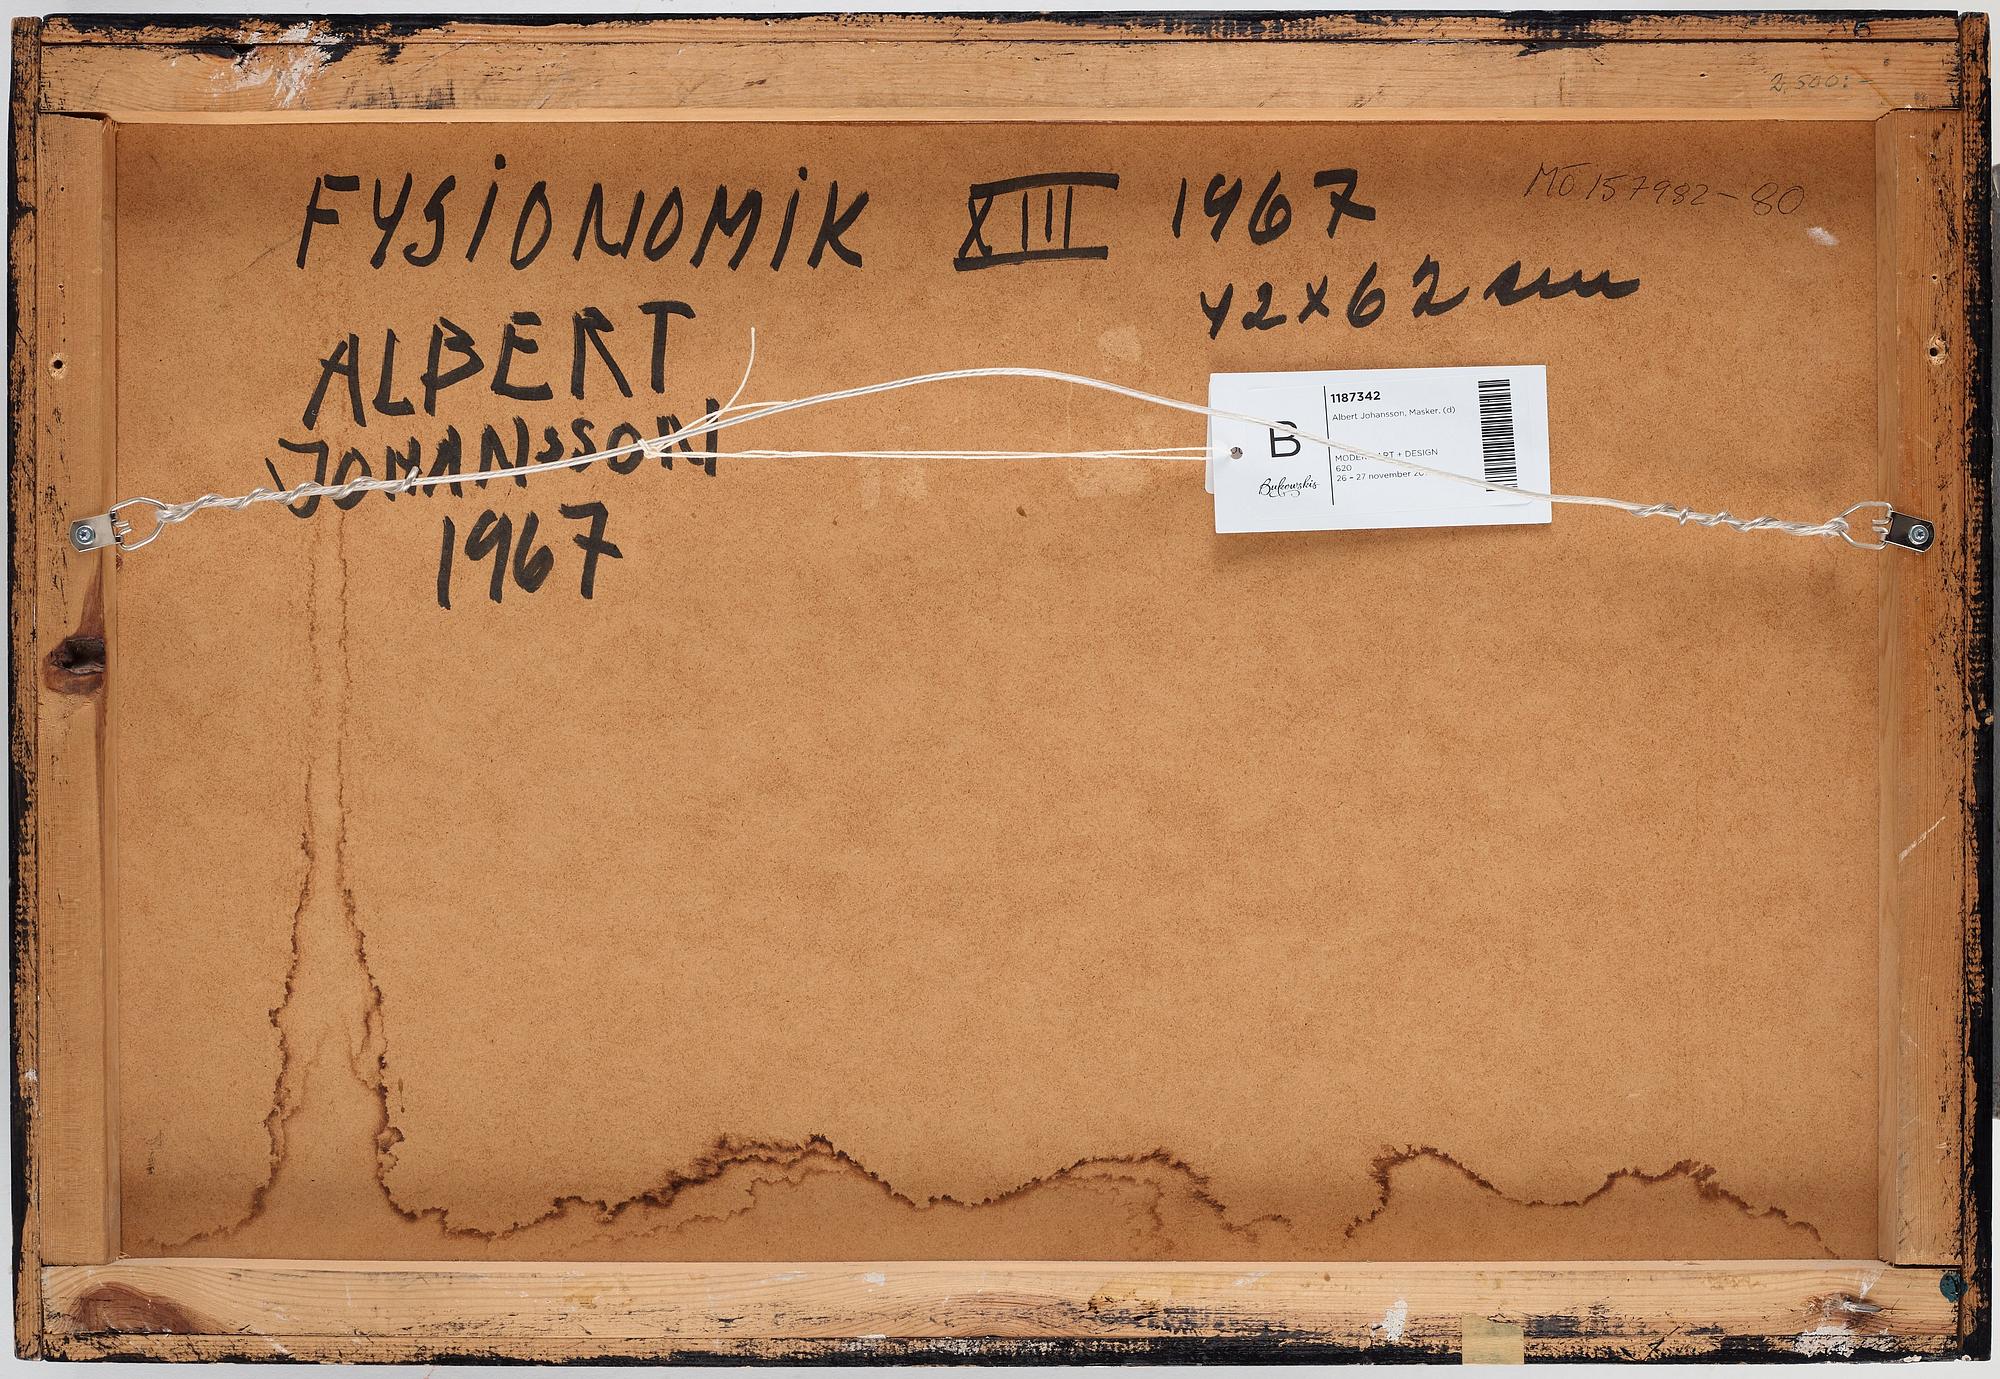 2.500:-
FYSIONOMIK XIII 1967
MÖ 157982-80
42x62 cm
ALBERT
JOHANSSON
1967
B
Bukowskis
1187342
Albert Johansson, Masker. (d)
ART + DESIGN
620
26 - 27 november